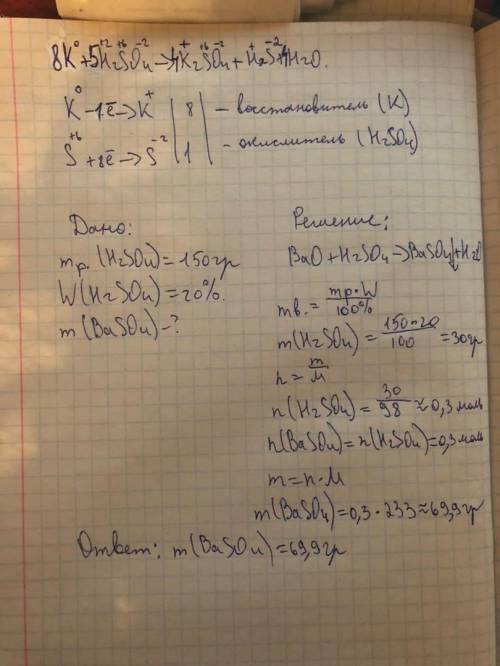 8K⁰ + 5H₂⁺²S⁺⁶O₄⁻² → 4K₂⁺S⁺⁶O₄⁻² + H₂⁺S⁻² + 4H₂O.
K⁰ - 1ē → K⁺ | 8 | - восстановитель (K)
S⁺⁶ + 8ē → S⁻² | 1 | - окислитель (H₂SO₄)
Дано:
mр. (H₂SO₄) = 150гр
W(H₂SO₄) = 20%.
m(BaSO₄) - ?
Решение:
BaO + H₂SO₄ → BaSO₄↓ + H₂O
mв. = mр·W / 100%
m(H₂SO₄) = 150·20 / 100 = 30гр
n = m / M
n(H₂SO₄) = 30 / 98 ≈ 0,3 моль
n(BaSO₄) = n(H₂SO₄) = 0,3 моль
m = n·M
m(BaSO₄) = 0,3 · 233 ≈ 69,9гр
Ответ: m(BaSO₄) = 69,9гр